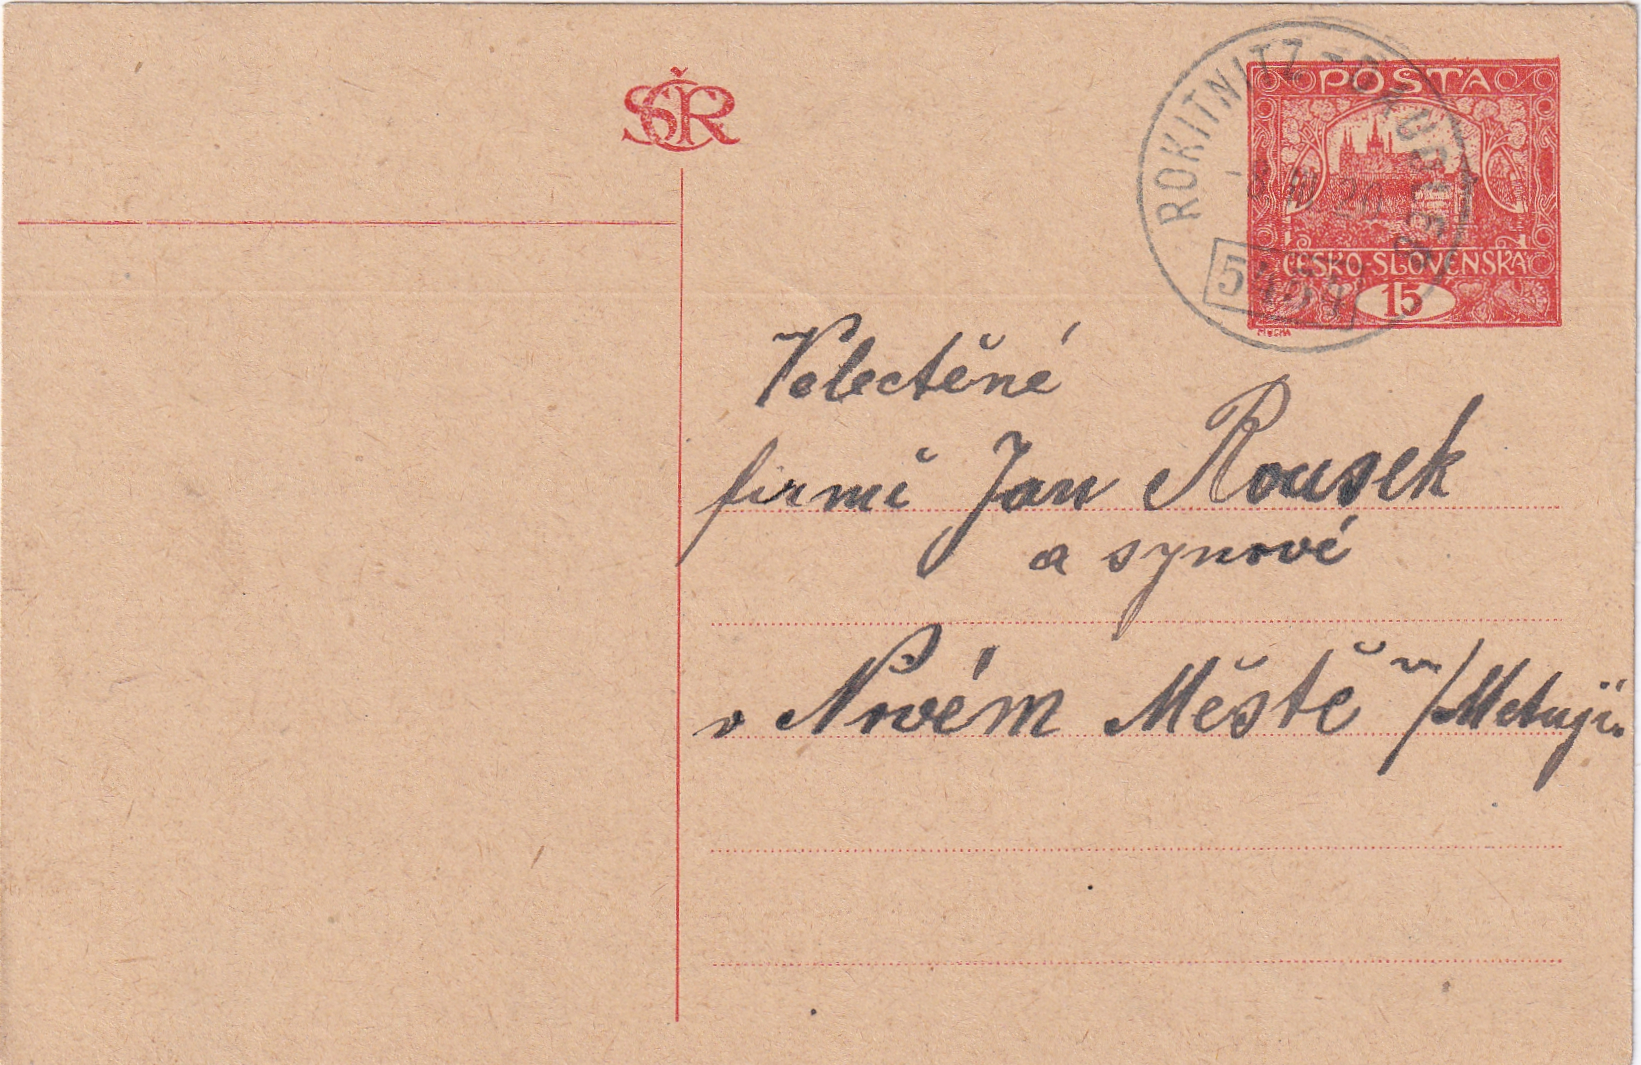 SČR
POŠTA
ČESKO-SLOVENSKÁ
15
MUCHA
ROKITNITZ
Velectěné
firmě Jan Rousek
a synové
v Novém Městě n/Metují.